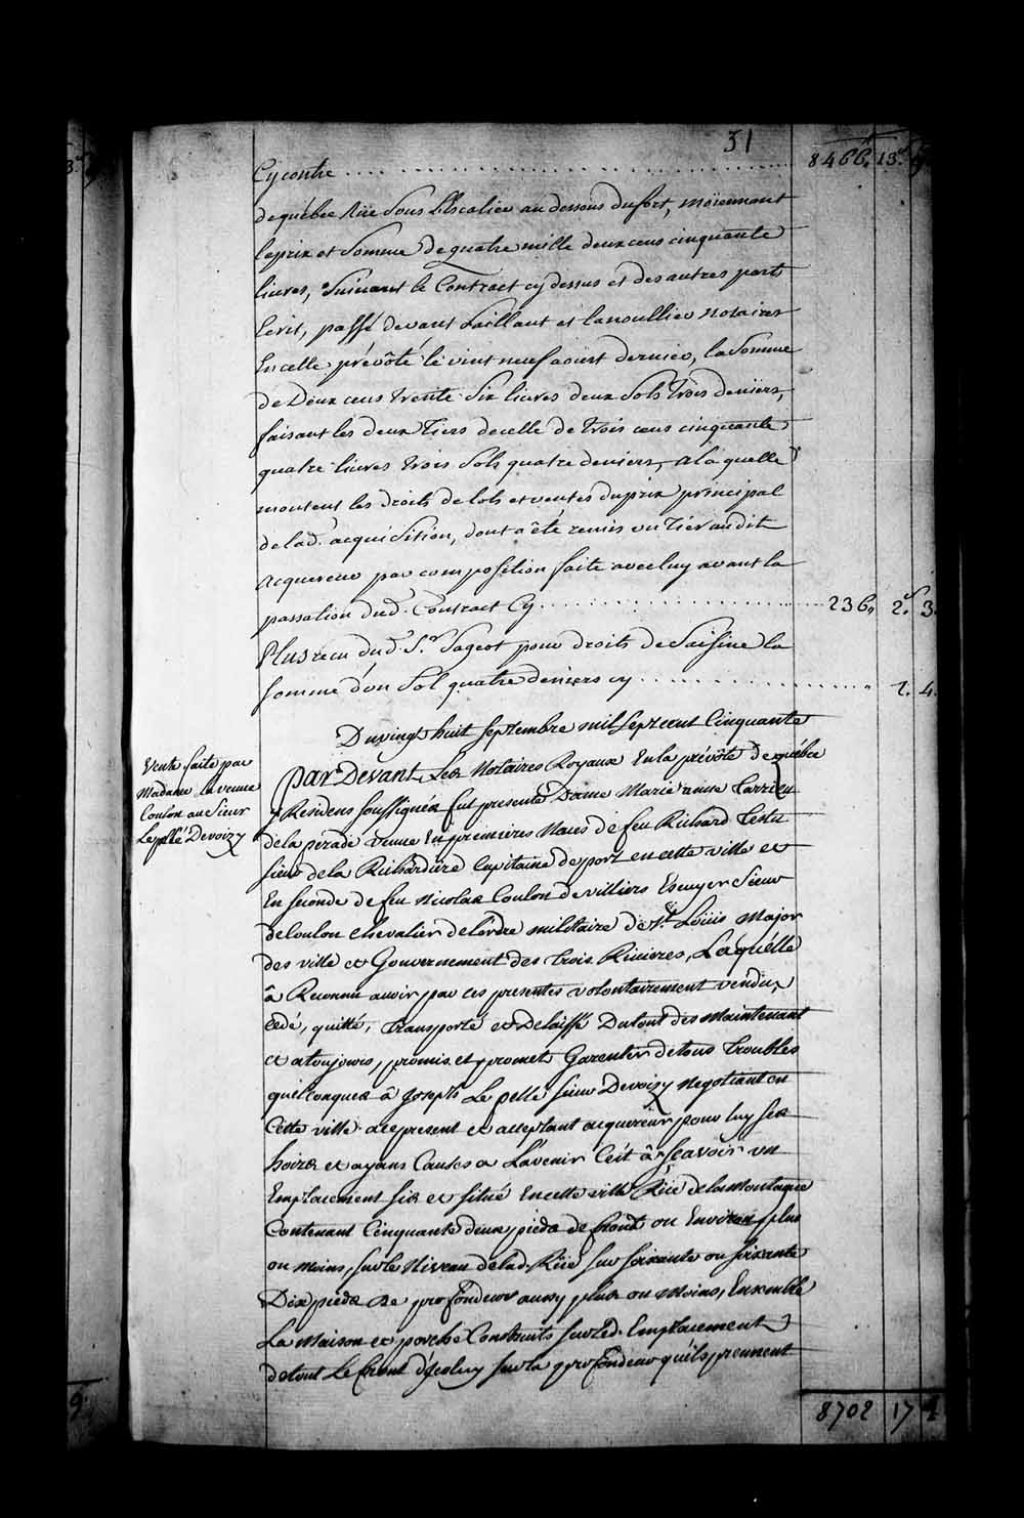 31
Cy contre .................... 8466. 13.s
de québec Rüe Sous L'Escalier au dessous du fort, moiennant
le prix et Somme de quatre mille deux cens cinquante
livres, Suivant le Contract cy dessus et des autres parts
Ecrit, passé devant Saillant et Lanoullier notaires
En celle prévôté le vint neuf aoust dernier, la Somme
de Deux cens trente Six livres deux Sols trois deniers,
faisant les deux tiers de celle de trois cens cinquante
quatre livres trois Sols quatre deniers, a laquelle
montent les droits de lods et ventes du prix principal
de lad. acquisition, dont a été remis un tier audit
acquereur par composition faite avec luy avant la
passation dud. Contract Cy .................... 236. 2.s 3.
Plus recu dud. S.r Sageot pour droits de Saisine la
Somme d'un Sol quatre deniers cy .................... 1. 4.
Du vingt huit septembre mil sept cent Cinquante
Vente faite par
Madame La veuve
Coulon au Sieur
Le pellé Devoizy
Par Devant Les Notaires Royaux En la prévôté de québec
y Residens soussignés fut presente Dame Marie anne Tarrieu
de la perade veuve En premieres Noces de feu Richard Testu
sieur de la Richardiere Capitaine de port en cette ville et
En seconde de feu Nicolas Coulon de villiers Escuyer Sieur
de Coulon chevalier de l'ordre militaire de St. Loüis Major
des ville et Gouvernement des trois Rivieres, Laquélle
â Reconnu avoir par ces presentes volontairement vendu,
cedé, quitté, transporté et delaissé Du tout des Maintenant
et a toujours, promis et promet Garentir de tous troubles
quelconques â Joseph Le pellé sieur Devoizy negotiant en
Cette ville a ce present et acceptant acquereur pour luy ses
hoirs et ayans Causes a L'avenir C'ést â scavoir un
Emplacement sis et situé En cette ville Rüe de la Montagne
Contenant Cinquante deux pieds de front ou Environ plus
ou moins, sur le Niveau de lad. Rüe sur soixante ou soixante
Dix pieds de profondeur aussy plus ou Moins, Ensemble
La Maison et porche Construits sur led. Emplacement
de tout Le front d'jceluy sur la profondeur qu'ils prennent
8702 17 1